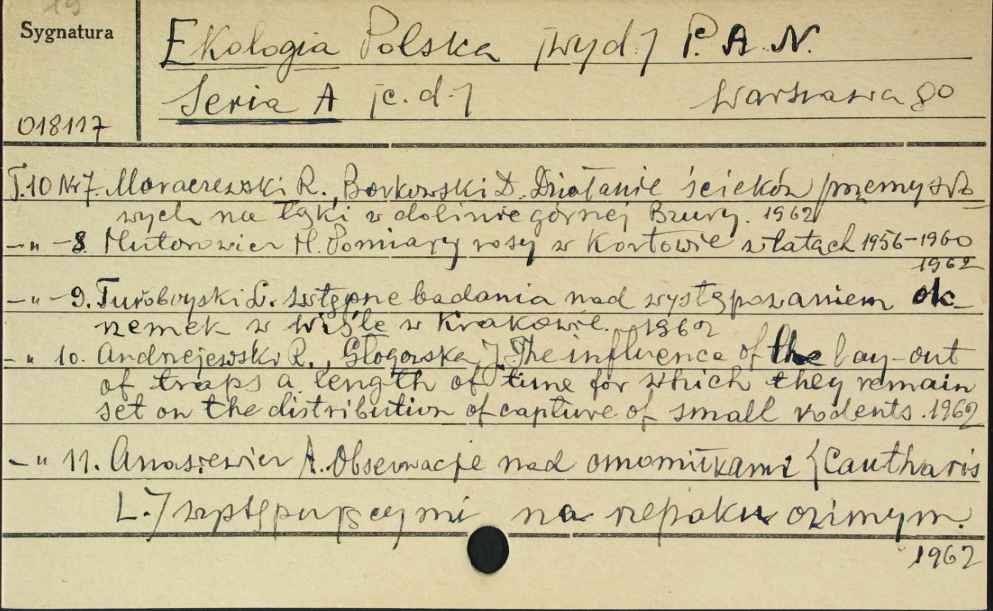 19
Sygnatura
Ekologia Polska [wyd.] P.A.N.
Seria A [c.d.] Warszawa 80
018117
T.10 Nr 7. Moraczewski R., Borkowski D. Działanie ścieków przemysło
wych na łąki w dolinie górnej Bzury. 1962
-"-8. Hutorowicz H. Pomiary rosy w Kortowie w latach 1956-1960
1962
-"-9. Turoboyski L. Wstępne badania nad występowaniem ok-
rzemek w Wiśle w Krakowie. 1962
-"10. Andrzejewski R., Głogowska J. The influence of the lay-out
of traps a length of time for which they remain
set on the distribution of capture of small rodents. 1962
-"11. Anasiewicz A. Obserwacje nad omomiłkami {Cautharis
L.} występującymi na rzepaku ozimym.
1962